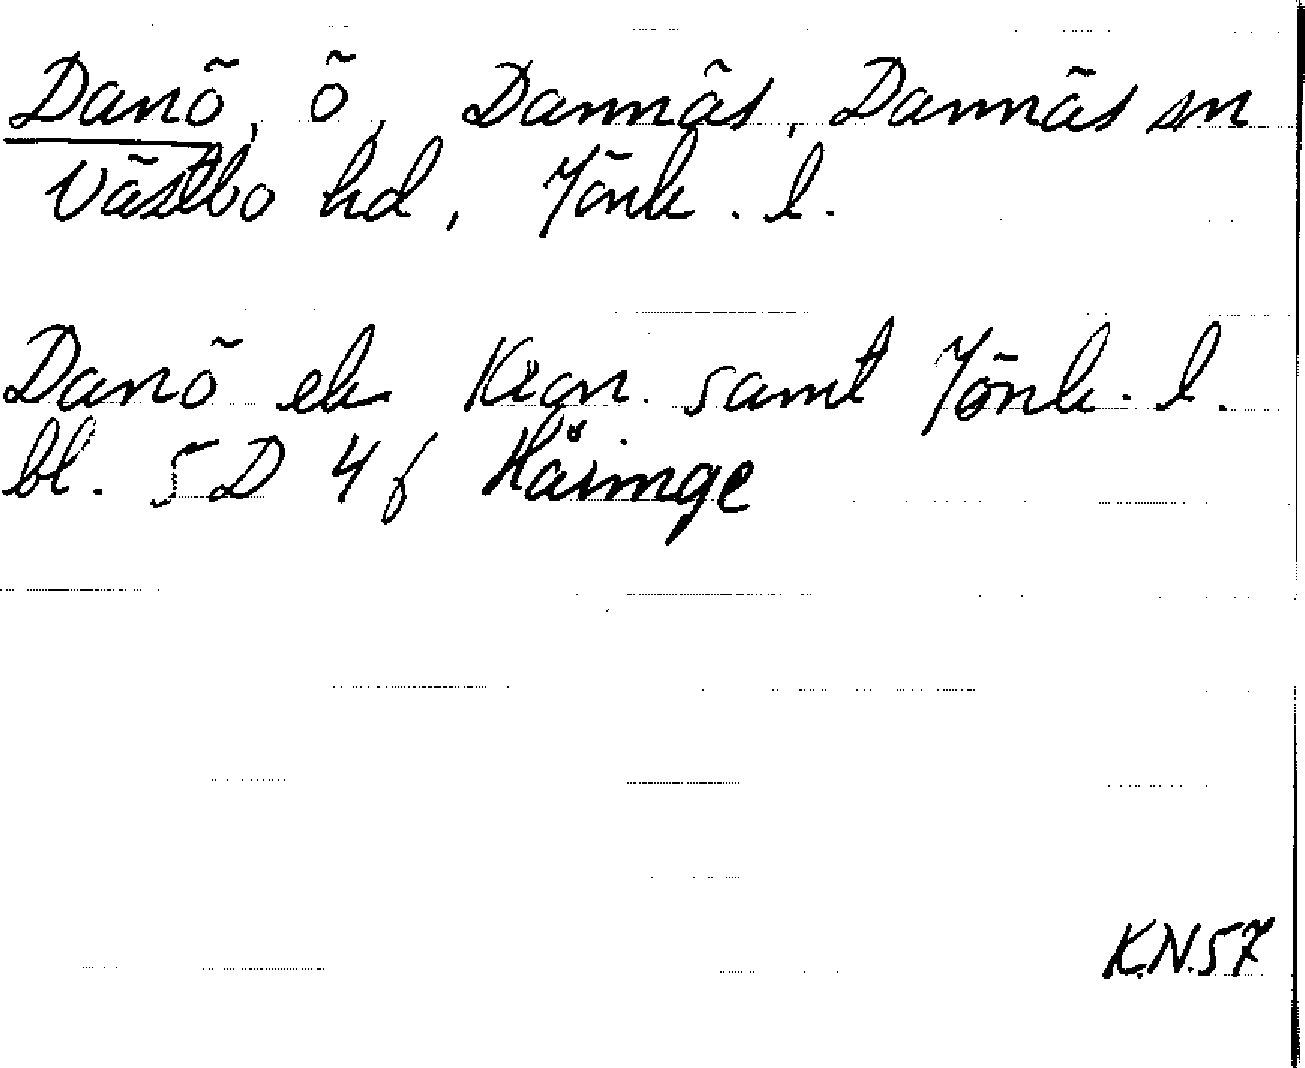 Danö, ö, Dannäs, Dannäs sn
Västbo hd, Jönk. l.
Danö ek Kron. samt Jönk. l.
bl. 5D 4f Häringe
K.N.57